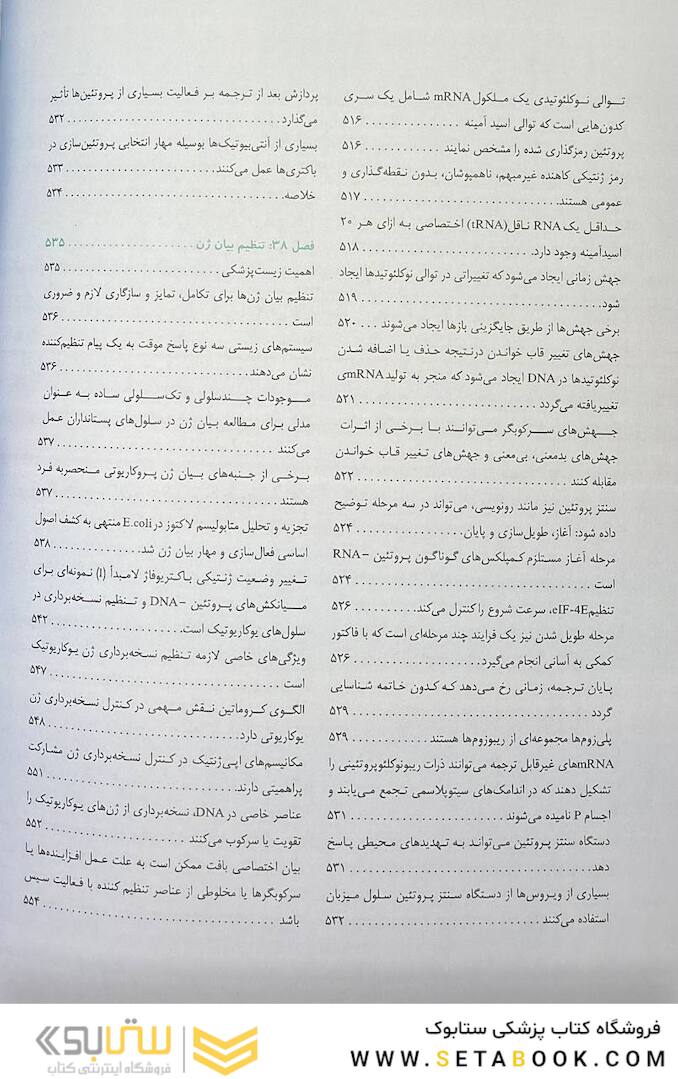 تـوالی نوکلئوتیدی یک ملکول mRNA شامل یک سری
کدون‌هایی است که توالی اسید آمینه
پروتئین رمزگذاری شده را مشخص نمایند ............ ۵۱۶
رمز ژنتیکی کاهنده غیرمبهم، ناهمپوشان، بدون نقطه‌گذاری و
عمومی هستند. ............ ۵۱۷
حداقل یک RNA ناقل (tRNA) اختصاصی به ازای هر ۲۰
اسیدآمینه وجود دارد. ............ ۵۱۸
جهش زمانی ایجاد می‌شود که تغییراتی در توالی نوکلئوتیدها ایجاد
شود. ............ ۵۱۹
برخی جهش‌ها از طریق جایگزینی بازها ایجاد می‌شوند ... ۵۲۰
جهش‌های تغییر قاب خواندن درنتیجه حذف یا اضافه شدن
نوکلئوتیدها در DNA ایجاد می‌شود که منجر به تولید mRNAی
تغییریافته می‌گردد ............ ۵۲۱
جهش‌های سرکوبگر می‌توانند با برخی از اثرات
جهش‌های بدمعنی، بی‌معنی و جهش‌های تغییر قاب خواندن
مقابله کنند ............ ۵۲۲
سنتز پروتئین نیز مانند رونویسی، می‌تواند در سه مرحله توضیح
داده شود: آغاز، طویل‌سازی و پایان. ............ ۵۲۴
مرحله آغاز مستلزم کمپلکس‌های گوناگون پروتئین – RNA
است ............ ۵۲۴
تنظیم eIF-4E، سرعت شروع را کنترل می‌کند. ............ ۵۲۶
مرحله طویل شدن نیز یک فرایند چند مرحله‌ای است که با فاکتور
کمکی به آسانی انجام می‌گیرد. ............ ۵۲۶
پایان ترجمه، زمانی رخ می‌دهد که کدون خاتمه شناسایی
گردد ............ ۵۲۹
پلی‌زوم‌ها مجموعه‌ای از ریبوزوم‌ها هستند ............ ۵۲۹
mRNAهای غیرقابل ترجمه می‌توانند ذرات ریبونوکلئوپروتئینی را
تشکیل دهند که در اندامک‌های سیتوپلاسمی تجمع می‌یابند و
اجسام P نامیده می‌شوند ............ ۵۳۱
دستگاه سنتز پروتئین می‌تواند به تهدیدهای محیطی پاسخ
دهد ............ ۵۳۱
بسیاری از ویروس‌ها از دستگاه سنتز پروتئین سلول میزبان
استفاده می‌کنند ............ ۵۳۲
پردازش بعد از ترجمه بر فعالیت بسیاری از پروتئین‌ها تأثیر
می‌گذارد ............ ۵۳۲
بسیاری از آنتی‌بیوتیک‌ها بوسیله مهار انتخابی پروتئین‌سازی در
باکتری‌ها عمل می‌کنند ............ ۵۳۳
خلاصه ............ ۵۳۴
فصل ۳۸: تنظیم بیان ژن ............ ۵۳۵
اهمیت زیست‌پزشکی ............ ۵۳۵
تنظیم بیان ژن‌ها برای تکامل، تمایز و سازگاری لازم و ضروری
است ............ ۵۳۶
سیستم‌های زیستی سه نوع پاسخ موقت به یک پیام تنظیم‌کننده
نشان می‌دهند ............ ۵۳۶
موجودات چندسلولی و تک‌سلولی ساده به عنوان
مدلی برای مطالعه بیان ژن در سلول‌های پستانداران عمل
می‌کنند ............ ۵۳۷
برخی از جنبه‌های بیان ژن پروکاریوتی منحصربه فرد
هستند ............ ۵۳۷
تجزیه و تحلیل متابولیسم لاکتوز در E.coli منتهی به کشف اصول
اساسی فعال‌سازی و مهار بیان ژن شد ............ ۵۳۸
تغییر وضعیت ژنتیکی باکتریوفاژ لامبدا (l) نمونه‌ای برای
میانکنش‌های پروتئین – DNA و تنظیم نسخه‌برداری در
سلول‌های یوکاریوتیک است. ............ ۵۴۲
ویژگی‌های خاصی لازمه تنظیم نسخه‌برداری ژن یوکاریوتیک
است ............ ۵۴۷
الگوی کروماتین نقش مهمی در کنترل نسخه‌برداری ژن
یوکاریوتی دارد ............ ۵۴۸
مکانیسم‌های اپی‌ژنتیک در کنترل نسخه‌برداری ژن مشارکت
پراهمیتی دارند. ............ ۵۵۱
عناصر خاصی در DNA، نسخه‌برداری از ژن‌های یوکاریوتیک را
تقویت یا سرکوب می‌کنند ............ ۵۵۲
بیان اختصاصی بافت ممکن است به علت عمل افزاینده‌ها یا
سرکوبگرها یا مخلوطی از عناصر تنظیم کننده با فعالیت سیس
باشد ............ ۵۵۴
فروشگاه کتاب پزشکی ستابوک
WWW.SETABOOK.COM
ستابوک
فروشگاه اینترنتی کتاب